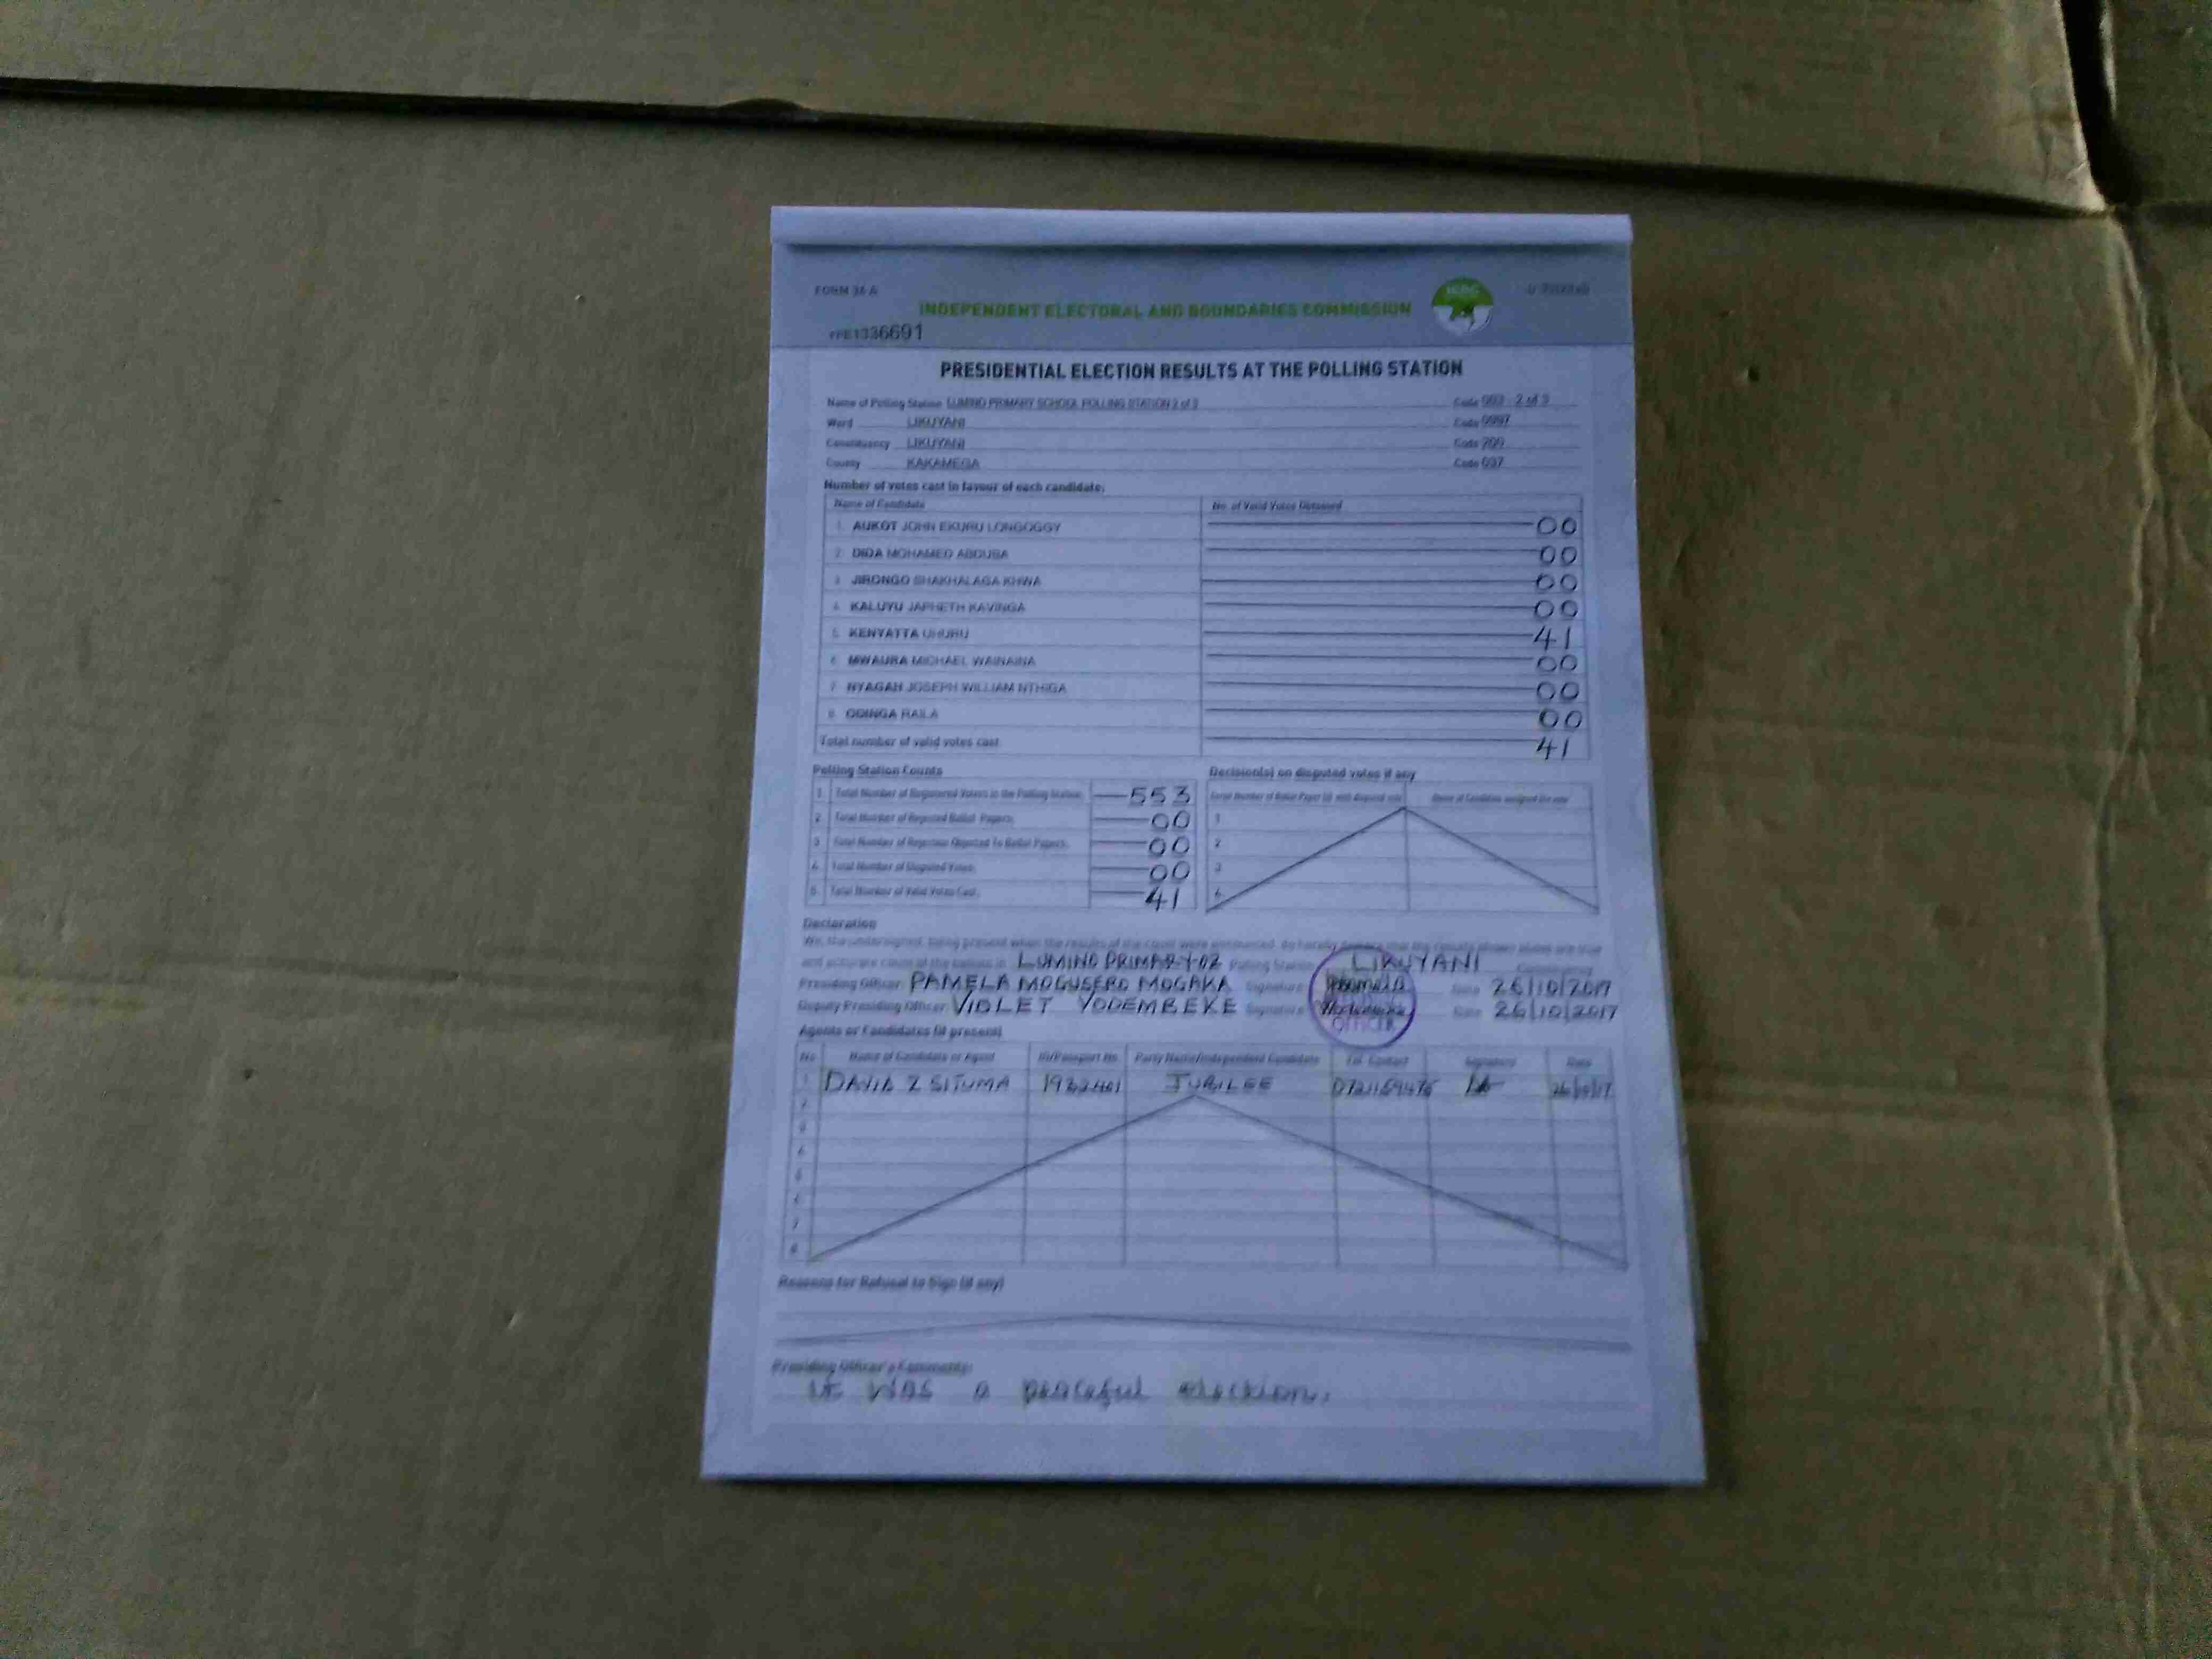 FORM 34 A
INDEPENDENT ELECTORAL AND BOUNDARIES COMMISSION
IEBC
PRE1336691
PRESIDENTIAL ELECTION RESULTS AT THE POLLING STATION
Name of Polling Station LUMINO PRIMARY SCHOOL POLLING STATION 2 of 3 Code 003 - 2 of 3
Ward LIKUYANI Code 0997
Constituency LIKUYANI Code 200
County KAKAMEGA Code 037
Number of votes cast in favour of each candidate:
Name of Candidate No. of Valid Votes Obtained
1. AUKOT JOHN EKURU LONGOGGY 00
2. DIDA MOHAMED ABDUBA 00
3. JIRONGO SHAKHALAGA KHWA 00
4. KALUYU JAPHETH KAVINGA 00
5. KENYATTA UHURU 41
6. MWAURA MICHAEL WAINAINA 00
7. NYAGAH JOSEPH WILLIAM NTHIGA 00
8. ODINGA RAILA 00
Total number of valid votes cast 41
Polling Station Counts Decision(s) on disputed votes if any
1. Total Number of Registered Voters in the Polling Station 553
2. Total Number of Rejected Ballot Papers 00
3. Total Number of Rejection Objected To Ballot Papers 00
4. Total Number of Disputed Votes 00
5. Total Number of Valid Votes Cast 41
Declaration
We, the undersigned, being present when the results of the count were announced, do hereby declare that the results shown above are true
and accurate count of the ballots in LUMINO PRIMARY-02 Polling Station LIKUYANI Constituency
Presiding Officer: PAMELA MOGUSERO MOGAKA Signature: Date 26/10/2017
Deputy Presiding Officer: VIOLET YODEMBEKE Signature: Date 26/10/2017
Agents or Candidates (if present)
No Name of Candidate or Agent ID/Passport No. Party Name/Independent Candidate Tel. Contact Signature Date
1 DAVID Z SITUMA JUBILEE 26/10/17
2
3
4
5
6
7
8
Reasons for Refusal to Sign (if any)
Presiding Officer's Comments:
It was a peaceful election.